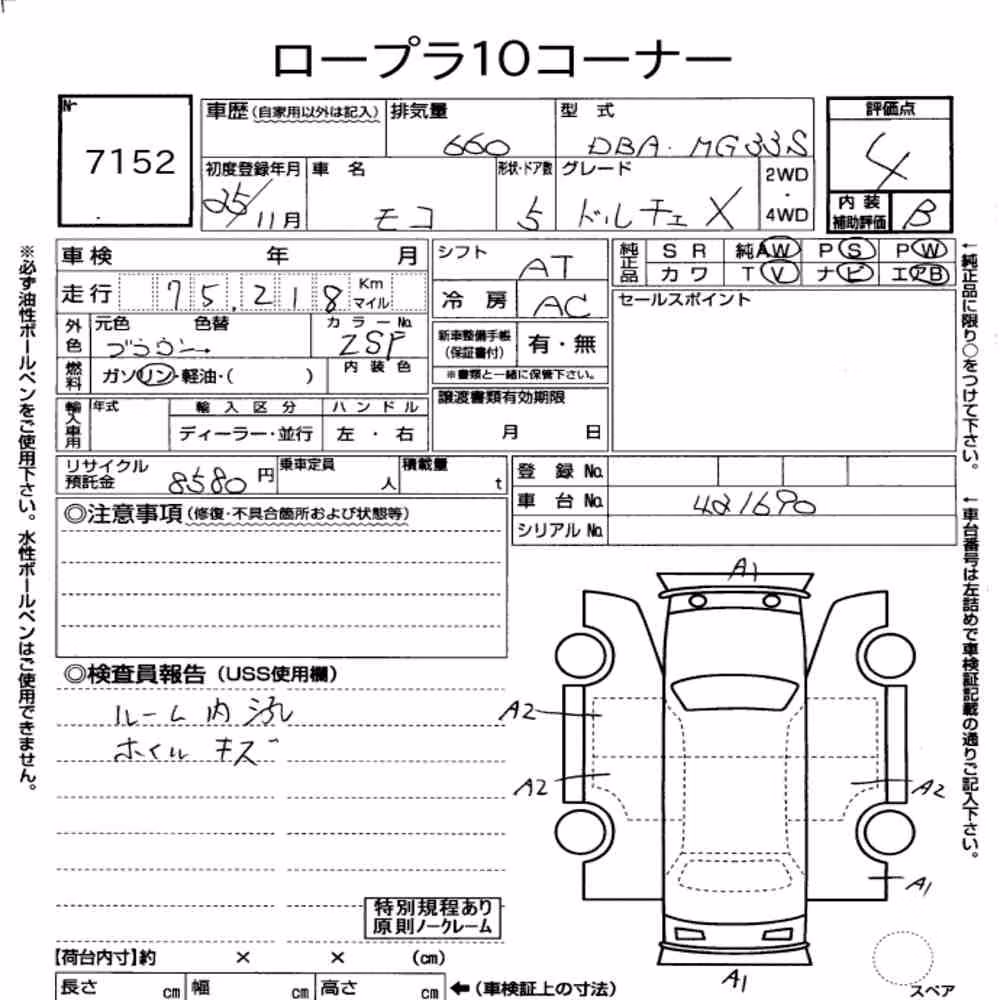 ロープラ10コーナー
№
7152
車歴 (自家用以外は記入)
排気量
660
型 式
DBA・MG33S
評価点
4
初度登録年月
25/11月
車 名
モコ
形状・ドア数
5
グレード
ドルチェ X
2WD
・
4WD
内 装
補助評価
B
車検 年 月
走行 75,218 Km マイル
外色
元色 色替
ブラウン
カラーNo.
ZSP
燃料
ガソリン・軽油・( )
内 装 色
輸入車用
年式
輸 入 区 分
ディーラー・並行
ハ ン ド ル
左 ・ 右
シフト
AT
冷 房
AC
新車整備手帳
(保証書付)
有・無
※書類と一緒に保管下さい。
譲渡書類有効期限
月 日
純正品
S R 純AW P S P W
カ ワ T V ナ ビ エアB
セールスポイント
リサイクル
預託金
8580 円
乗車定員
人
積載量
t
登 録 No.
車 台 No. 421690
シリアル No.
◎注意事項 (修復・不具合箇所および状態等)
◎検査員報告 (USS使用欄)
ルーム内汚れ
ホイルキズ
特別規程あり
原則ノークレーム
A1
A2
A2
A2
A1
A1
スペア
【荷台内寸】約 × × (cm)
長さ cm 幅 cm 高さ cm ←(車検証上の寸法)
※必ず油性ボールペンをご使用下さい。水性ボールペンはご使用できません。
←純正品に限り○をつけて下さい。
←車台番号は左詰めで車検証記載の通りご記入下さい。